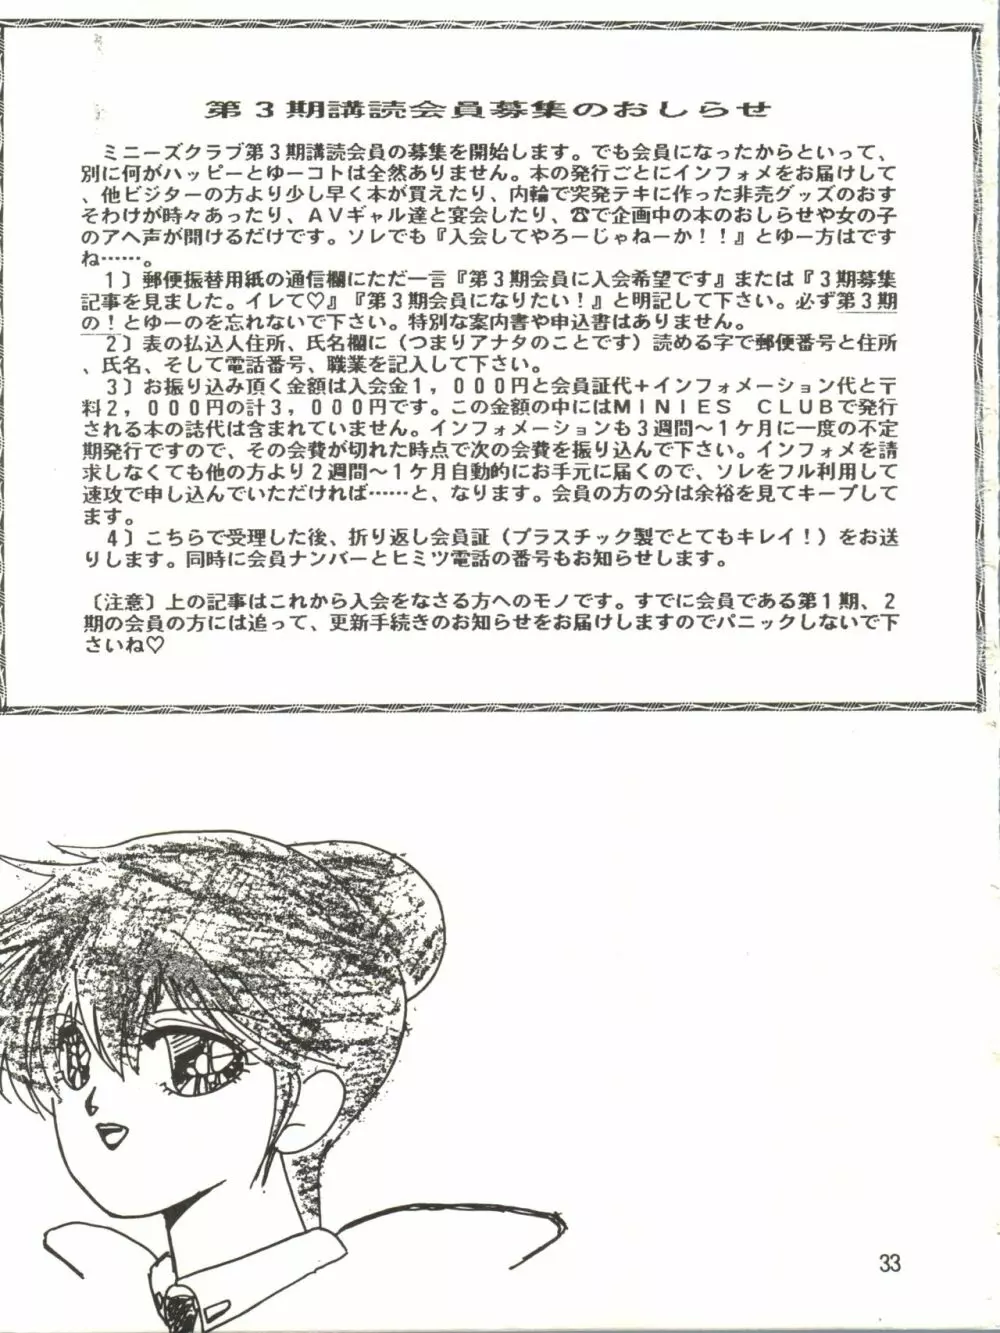 第3期講読会員募集のおしらせ
ミニーズクラブ第3期講読会員の募集を開始します。でも会員になったからといって、
別に何がハッピーとゆーコトは全然ありません。本の発行ごとにインフォメをお届けして
、他ビジターの方より少し早く本が買えたり、内輪で突発テキに作った非売グッズのおす
そわけが時々あったり、AVギャル達と宴会したり、☎で企画中の本のおしらせや女の子
のアヘ声が聞けるだけです。ソレでも『入会してやろーじゃねーか!!』とゆー方はです
ね……。
1〕郵便振替用紙の通信欄にただ一言『第3期会員に入会希望です』または『3期募集
記事を見ました。イレて♡』『第3期会員になりたい!』と明記して下さい。必ず第3期
の!とゆーのを忘れないで下さい。特別な案内書や申込書はありません。
2〕表の払込人住所、氏名欄に(つまりアナタのことです)読める字で郵便番号と住所
、氏名、そして電話番号、職業を記入して下さい。
3〕お振り込み頂く金額は入会金1,000円と会員証代+インフォメーション代と〒
料2,000円の計3,000円です。この金額の中にはMINIES CLUBで発行
される本の誌代は含まれていません。インフォメーションも3週間~1ケ月に一度の不定
期発行ですので、その会費が切れた時点で次の会費を振り込んで下さい。インフォメを請
求しなくても他の方より2週間~1ケ月自動的にお手元に届くので、ソレをフル利用して
速攻で申し込んでいただければ……と、なります。会員の方の分は余裕を見てキープして
ます。
4〕こちらで受理した後、折り返し会員証(プラスチック製でとてもキレイ!)をお送
りします。同時に会員ナンバーとヒミツ電話の番号もお知らせします。
〔注意〕上の記事はこれから入会をなさる方へのモノです。すでに会員である第1期、2
期の会員の方には追って、更新手続きのお知らせをお届けしますのでパニックしないで下
さいね♡
33